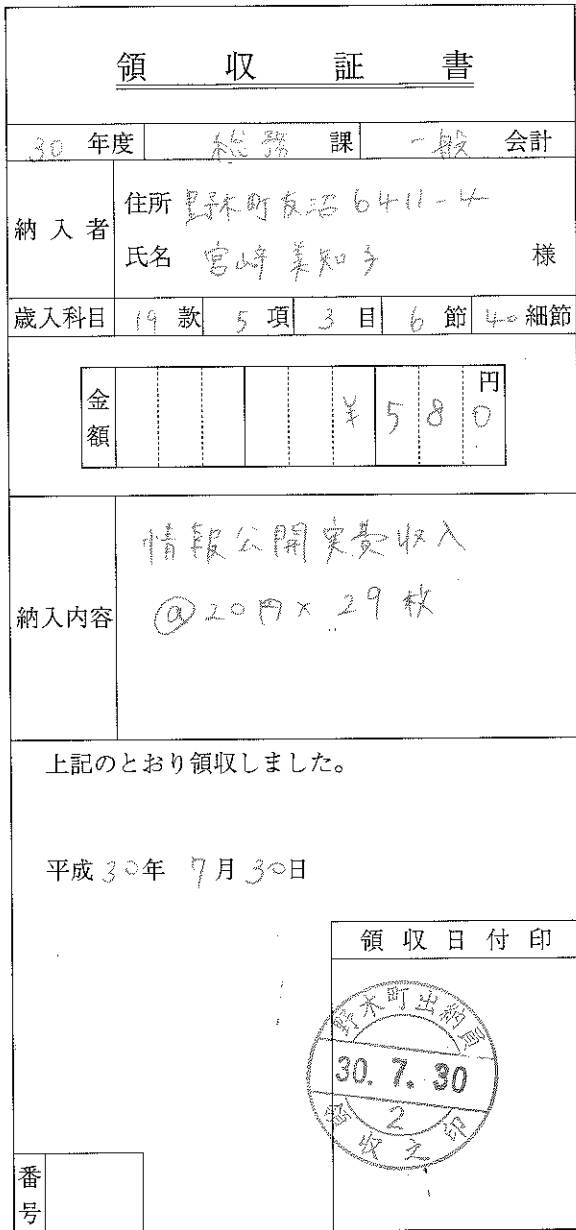 領収証書
30 年度 総務 課 一般 会計
納入者
住所 野木町友沼6411-4
氏名 宮崎 美知子 様
歳入科目 19 款 5 項 3 目 6 節 40 細節
金額 ¥580円
納入内容
情報公開実費収入
@20円×29枚
上記のとおり領収しました。
平成30年 7月30日
領収日付印
野木町出納員
30. 7. 30
2
領収之印
番号